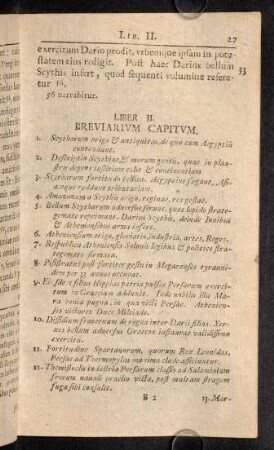 LIB. II. 27
exercitum Dario prodit, urbemque ipsam in pote-
statem ejus redigit. Post hæc Darius bellum 33
Scythis infert, quod sequenti volumine refere-
tur 56.
56 narrabitur.
LIBER II.
BREVIARIUM CAPITVM.
1. Scytharum origo & antiquitas, de qua cum Ægyptiis
contendunt.
2. Descriptio Scythiæ, & morum gentis, quæ in plau-
stris degens justitiam colit & continentiam
3. Scytharum fortitudo bellica. Ægyptios fugant, Asi-
amque reddunt tributariam.
4. Amazonum a Scythis origo, reginæ, res gestæ.
5. Bellum Scytharum adversus servos, quos lepido strate-
gemate reprimunt. Darius Scythis, deinde Ionibus
& Atheniensibus arma infert.
6. Atheniensium origo, gloria, industria, artes, Reges.
7. Respublica Atheniensis Solonis legibus & politico stra-
tegemate firmata.
8. Pisistratus post fortiter gesta in Megarenses tyranni-
dem per 33 annos occupat.
9. Ejusdem filius Hippias patria pulsus Persarum exercitum
in Græciam adducit. Inde nobilis illa Ma-
rathonia pugna, in qua victi Persæ. Athenien-
ses victores Duce Miltiade.
10. Dissidium fraternum de regno inter Darii filios. Xer-
xes bellum adversus Græcos instaurat validissimo
exercitu.
11. Fortitudine Spartanorum, quorum Rex Leonidas,
Persæ ad Thermopylas maxima clade afficiuntur.
12. Themistoclis industria Persarum classis ad Salaminium
fretum navali prœlio victa, post multam stragem
fuga sibi consulit.
B 2 13. Mar-